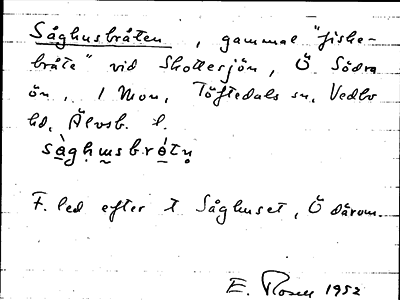 Såghusbråten, gammal "fiske-
bråte" vid Skottesjön, Ö. Södra
ön, 1 Mon, Töftedals sn, Vedbo
hd, Älvsb. l.
F. led efter t Såghuset, Ö därom.
E. Rosen 1952